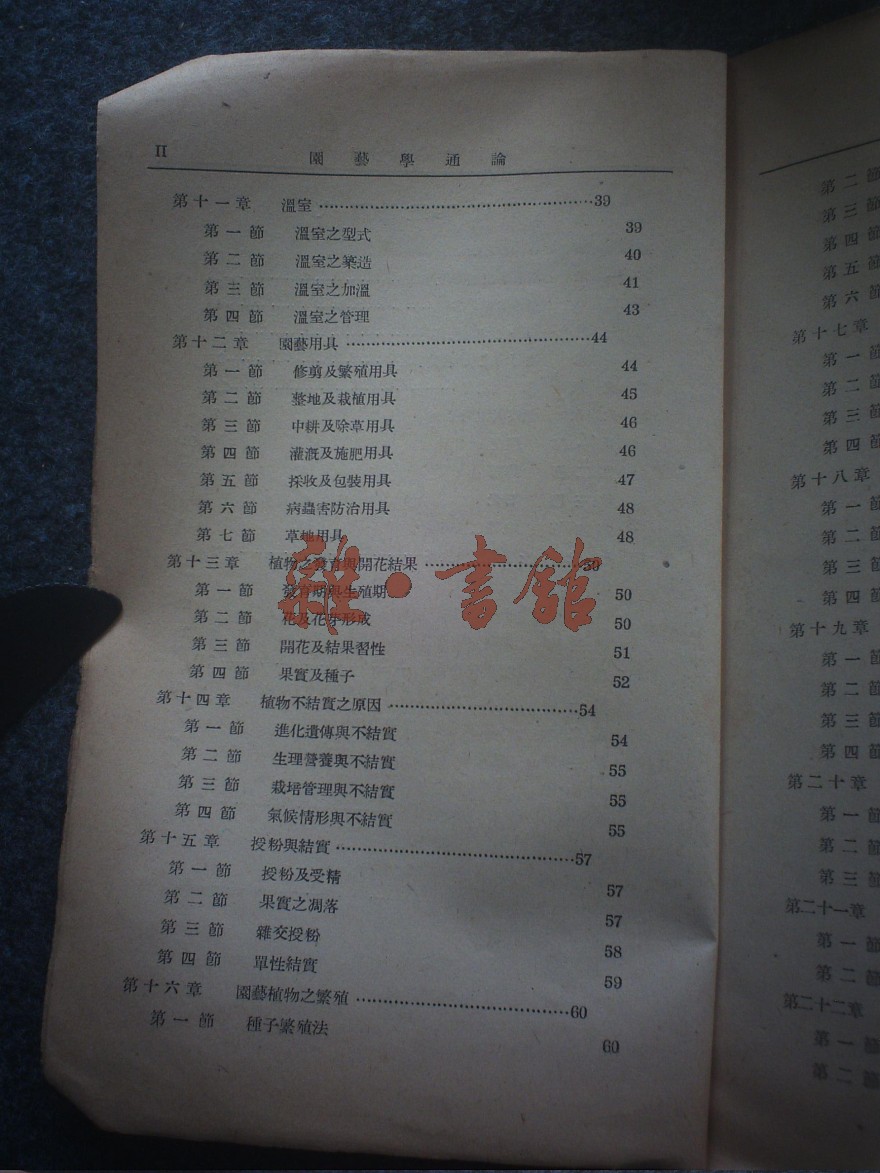 II 園藝學通論
第十一章 溫室 39
第一節 溫室之型式 39
第二節 溫室之築造 40
第三節 溫室之加溫 41
第四節 溫室之管理 43
第十二章 園藝用具 44
第一節 修剪及繁殖用具 44
第二節 整地及栽植用具 45
第三節 中耕及除草用具 46
第四節 灌漑及施肥用具 46
第五節 採收及包裝用具 47
第六節 病蟲害防治用具 48
第七節 草地用具 48
第十三章 植物之發育與開花結果 50
第一節 發育期與生殖期 50
第二節 花及花芽形成 50
第三節 開花及結果習性 51
第四節 果實及種子 52
第十四章 植物不結實之原因 54
第一節 進化遺傳與不結實 54
第二節 生理營養與不結實 55
第三節 栽培管理與不結實 55
第四節 氣候情形與不結實 55
第十五章 授粉與結實 57
第一節 授粉及受精 57
第二節 果實之凋落 57
第三節 雜交授粉 58
第四節 單性結實 59
第十六章 園藝植物之繁殖 60
第一節 種子繁殖法 60
雜·書館
第二節
第三節
第四節
第五節
第六節
第十七章
第一節
第二節
第三節
第四節
第十八章
第一節
第二節
第三節
第四節
第十九章
第一節
第二節
第三節
第四節
第二十章
第一節
第二節
第三節
第二十一章
第一節
第二節
第二十二章
第一節
第二節